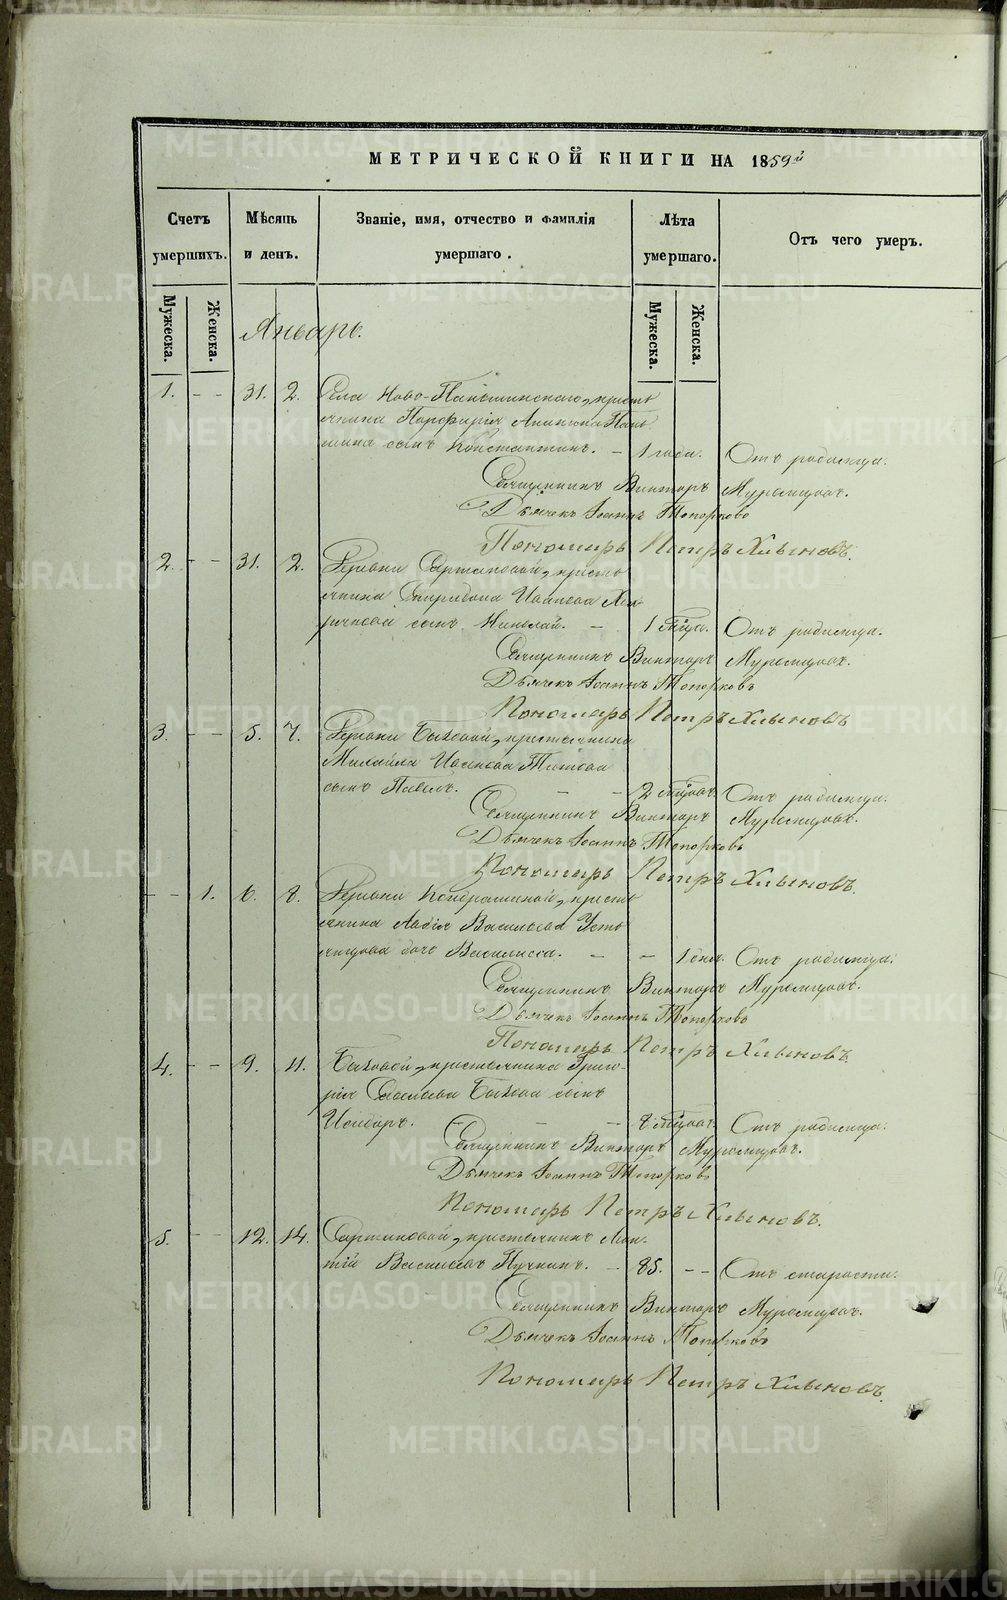 МЕТРИЧЕСКОЙ КНИГИ НА 1859й
Счетъ умершихъ.
Мѣсяцъ и день.
Званіе, имя, отчество и фамилія умершаго.
Лѣта умершаго.
Отъ чего умеръ.
Мужеска.
Женска.
Мужеска.
Женска.
Январь.
1. - - 31. 2. Села Ново-Паньшинскаго, кресть
янина Порфирія Ананьина Пань
шина сынъ Константинъ. - 1 года. Отъ родимца.
Священникъ Викторъ Муромцовъ.
Дьячекъ Іоаннъ Топорковъ
Пономарь Петръ Хлыновъ.
2. - - 31. 2. Деревни кресть
янина Спиридона Иванова
сынъ Николай. - 1 мѣсца. Отъ родимца.
Священникъ Викторъ Муромцовъ.
Дьячекъ Іоаннъ Топорковъ
Пономарь Петръ Хлыновъ
3. - - 5. 7. Деревни Быковой, крестьянина
Михайла Иванова
сынъ Павелъ. - - 2 мѣсцовъ. Отъ родимца.
Священникъ Викторъ Муромцовъ.
Дьячекъ Іоаннъ Топорковъ
Пономарь Петръ Хлыновъ.
- - 1. 6. 8. Деревни Кондрашиной, кресть
янина Авдія Васильева Усть
янцова дочь Василисса. - - 1 дня. Отъ родимца.
Священникъ Викторъ Муромцовъ.
Дьячекъ Іоаннъ Топорковъ
Пономарь Петръ Хлыновъ.
4. - - 9. 11. Быковой, крестьянина Григо-
рія Быкова сынъ
- - мѣсцовъ. Отъ родимца.
Священникъ Викторъ Муромцовъ.
Дьячекъ Іоаннъ Топорковъ
Пономарь Петръ Хлыновъ.
5. - - 12. 14. крестьянинъ
Васильевъ Пучкинъ. - 85. - - Отъ старости.
Священникъ Викторъ Муромцовъ.
Дьячекъ Іоаннъ Топорковъ
Пономарь Петръ Хлыновъ.
METRIKI.GASO-URAL.RU